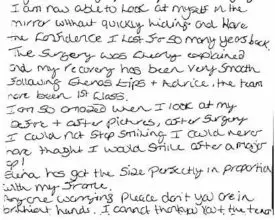 I am now able to look at myself in the
mirror without quickly hiding and have
the confidence I lost for so many years back.
The Surgery was clearly explained
and my recovery has been very smooth
following Elenas tips + Advice. the team
have been 1st Class.
I am so amazed when I look at my
before + after pictures, after surgery
I could not stop smiling I could never
have thought I would smile after a major
op!
Elena has got the size perfectly in proportion
with my frame.
Anyone worrying please don't you are in
brilliant hands. I cannot thank you + the team